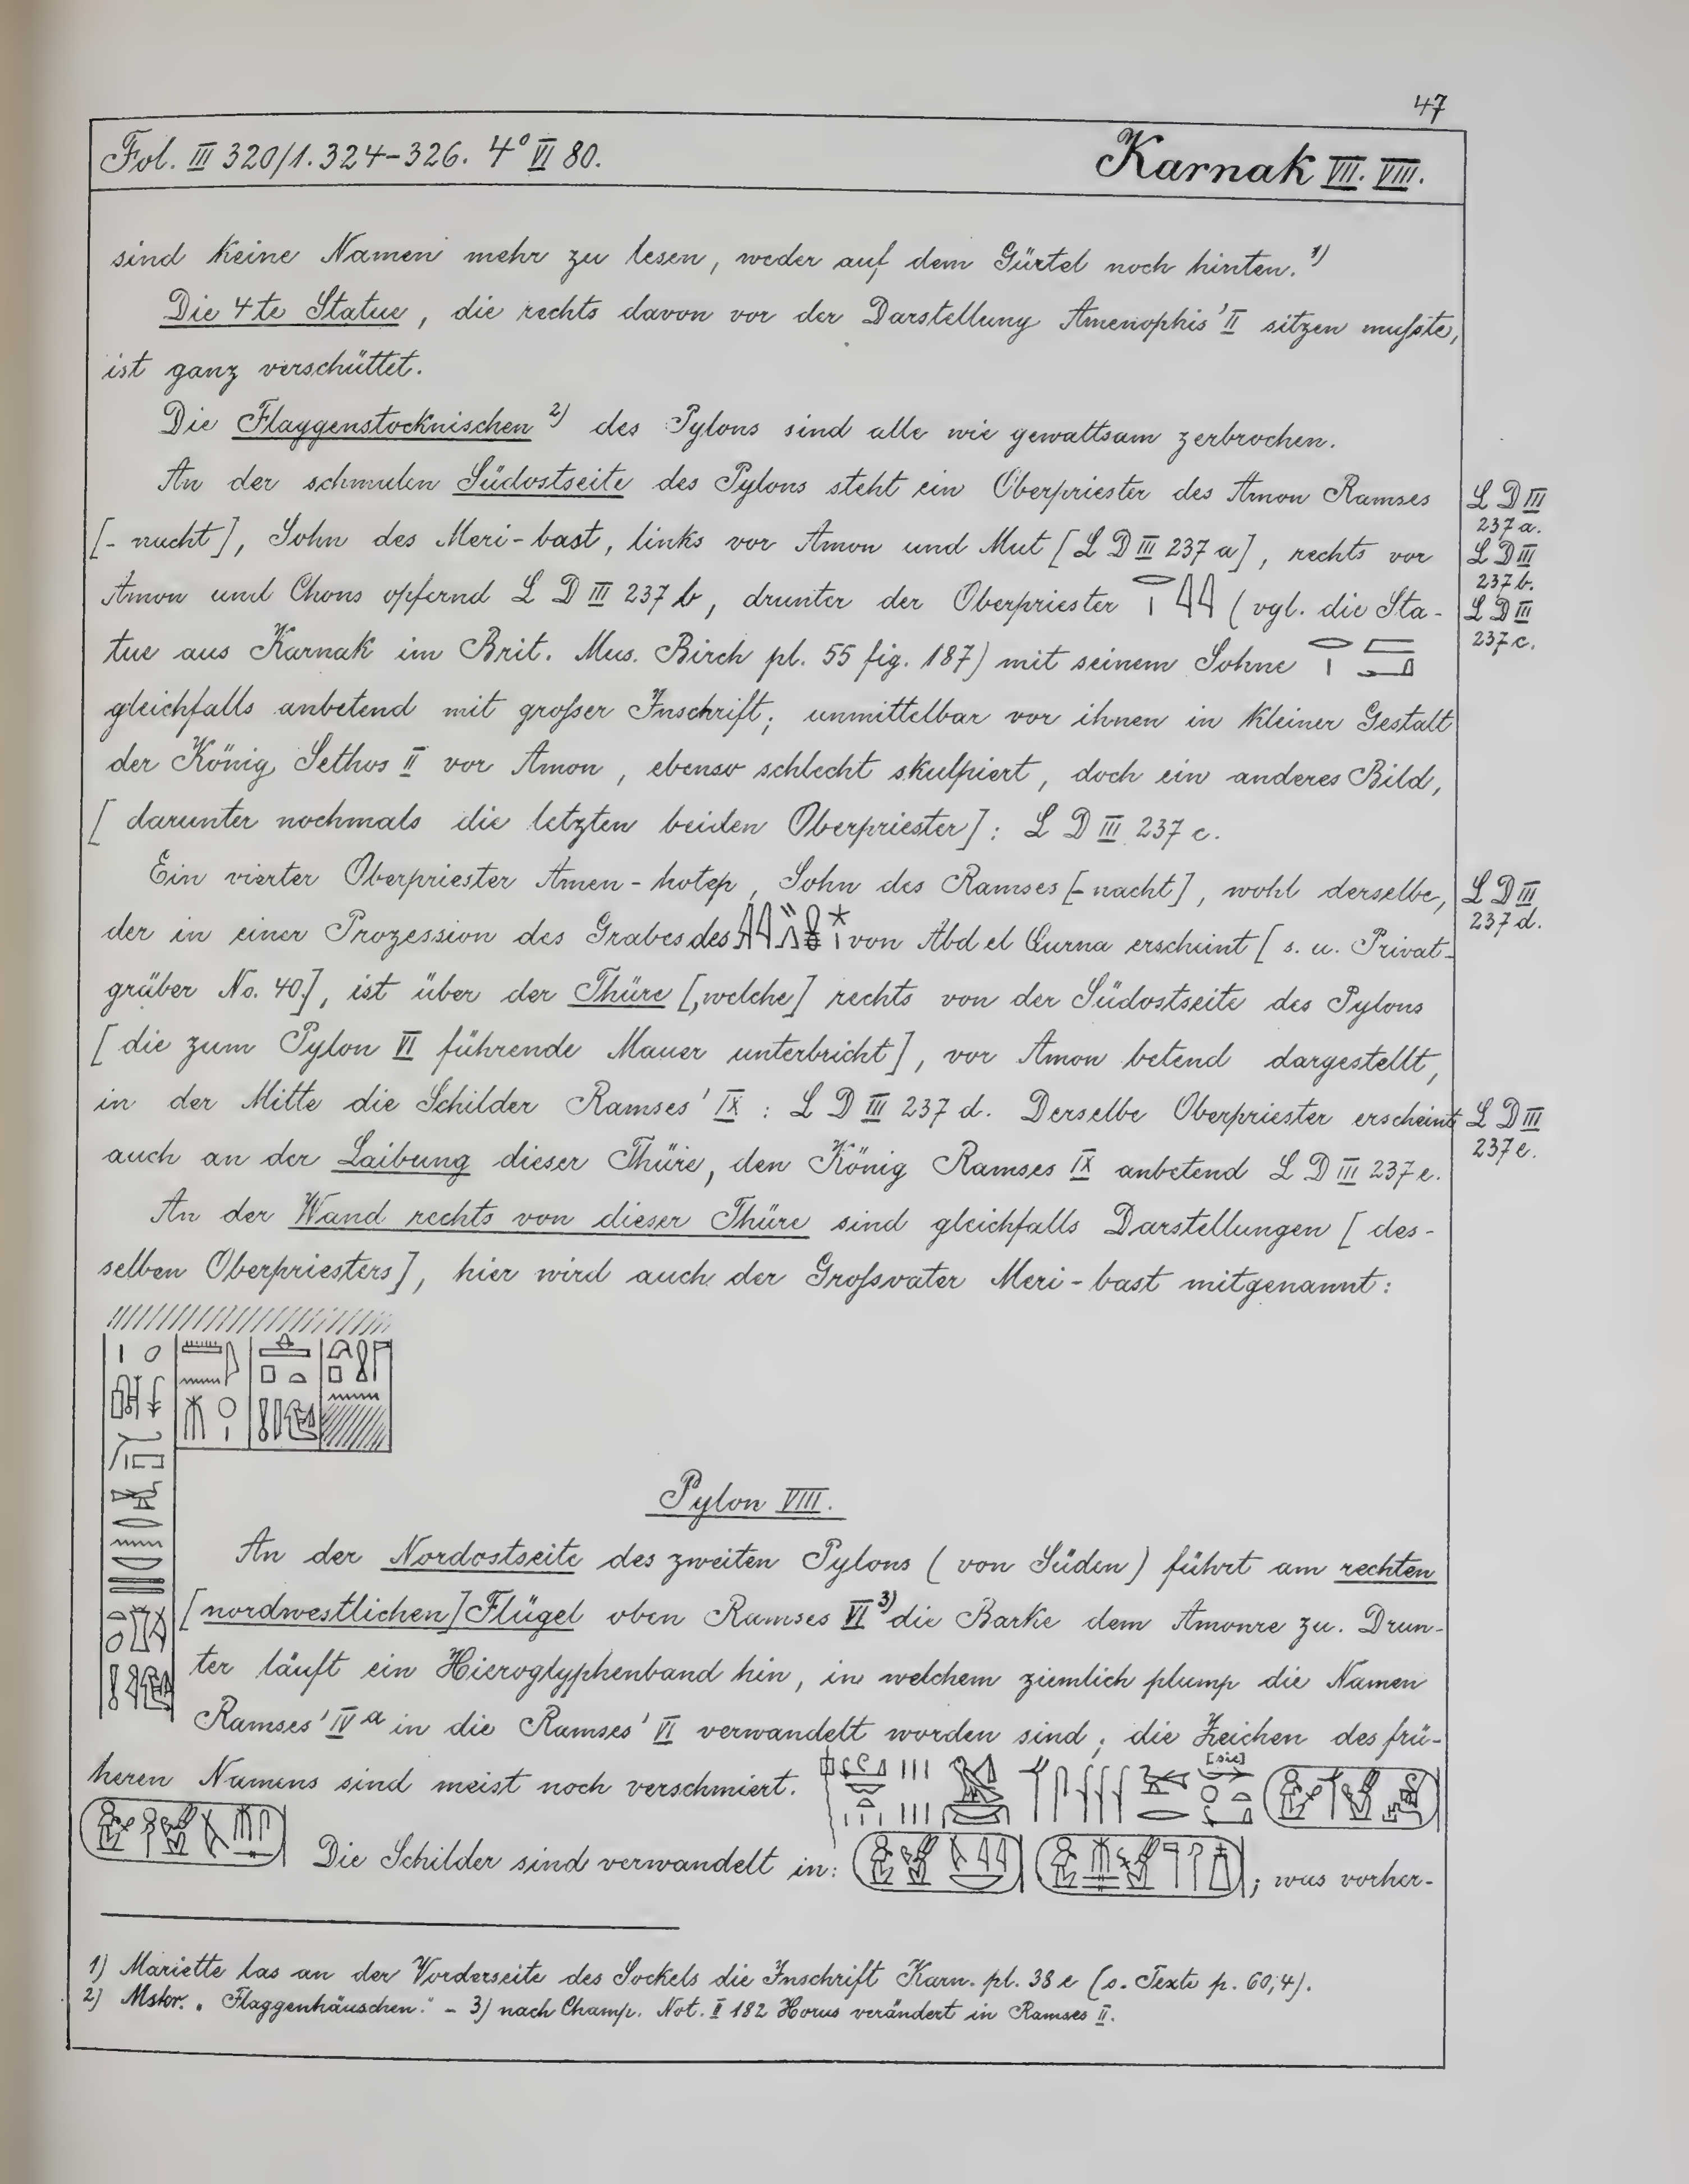 47
Fol. III 320/1. 324-326. 4° VI 80.
Karnak VII. VIII.
sind keine Namen mehr zu lesen, weder auf dem Gürtel noch hinten. 1)
Die 4te Statue, die rechts davon vor der Darstellung Amenophis' II sitzen mußte,
ist ganz verschüttet.
Die Flaggenstocknischen 2) des Pylons sind alle wie gewaltsam zerbrochen.
An der schmalen Südostseite des Pylons steht ein Oberpriester des Amon Ramses
[-nacht], Sohn des Meri-bast, links vor Amon und Mut [L D III 237 a], rechts vor
Amon und Chons opfernd L D III 237 b, drunter der Oberpriester (vgl. die Sta-
tue aus Karnak im Brit. Mus. Birch pl. 55 fig. 187) mit seinem Sohne
gleichfalls anbetend mit großer Inschrift; unmittelbar vor ihnen in kleiner Gestalt
der König Sethos II vor Amon, ebenso schlecht skulpiert, doch ein anderes Bild,
[darunter nochmals die letzten beiden Oberpriester]: L D III 237 c.
Ein vierter Oberpriester Amen-hotep, Sohn des Ramses [-nacht], wohl derselbe,
der in einer Prozession des Grabes des von Abd el Qurna erscheint [s. u. Privat-
gräber No. 40.], ist über der Thüre [, welche] rechts von der Südostseite des Pylons
[die zum Pylon VI führende Mauer unterbricht], vor Amon betend dargestellt,
in der Mitte die Schilder Ramses' IX : L D III 237 d. Derselbe Oberpriester erscheint
auch an der Laibung dieser Thüre, den König Ramses IX anbetend L D III 237 e.
An der Wand rechts von dieser Thüre sind gleichfalls Darstellungen [des-
selben Oberpriesters], hier wird auch der Großvater Meri-bast mitgenannt:
L D III
237 a.
L D III
237 b.
L D III
237 c.
L D III
237 d.
L D III
237 e.
Pylon VIII.
An der Nordostseite des zweiten Pylons (von Süden) führt am rechten
[nordwestlichen] Flügel oben Ramses VI 3) die Barke dem Amonre zu. Drun-
ter läuft ein Hieroglyphenband hin, in welchem ziemlich plump die Namen
Ramses' IV a in die Ramses' VI verwandelt worden sind; die Zeichen des frü-
heren Namens sind meist noch verschmiert. [sic]
Die Schilder sind verwandelt in: ; was vorher-
1) Mariette las an der Vorderseite des Sockels die Inschrift Karn. pl. 38 e (s. Texte p. 60, 4).
2) Mskr. „Flaggenhäuschen." – 3) nach Champ. Not. II 182 Horus verändert in Ramses II.